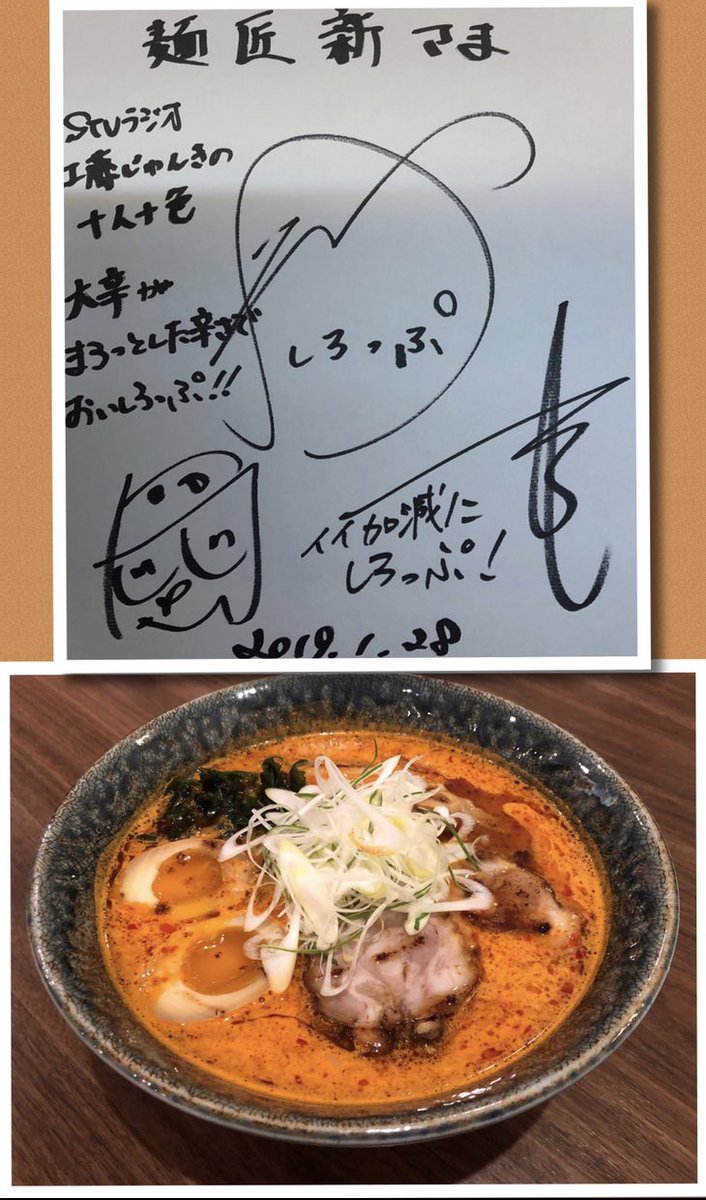 麺匠新さま
STVラジオ
工藤じゅんきの
十人十色
大辛が
まろっとした辛さで
おいしろっぷ!!
しろっぷ
イイ加減に
しろっぷ!
2019.1.28